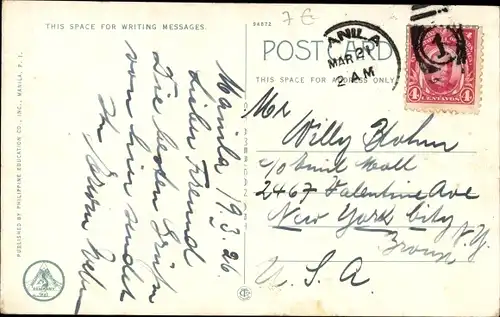 7 €
96872
THIS SPACE FOR WRITING MESSAGES.
POSTCARD
THIS SPACE FOR ADDRESS ONLY.
ANILA
MAR 21
2 AM
1
4 CENTAVOS 4
Manila 19.3.26
Lieber Freund
Die besten Grüße
von hier sendet
Mr
Willy Blohm
c/o Emil Moll
2467 Valentine Ave
New York City
N.Y.
Bronx
U.S.A
PUBLISHED BY PHILIPPINE EDUCATION CO., INC., MANILA, P. I.